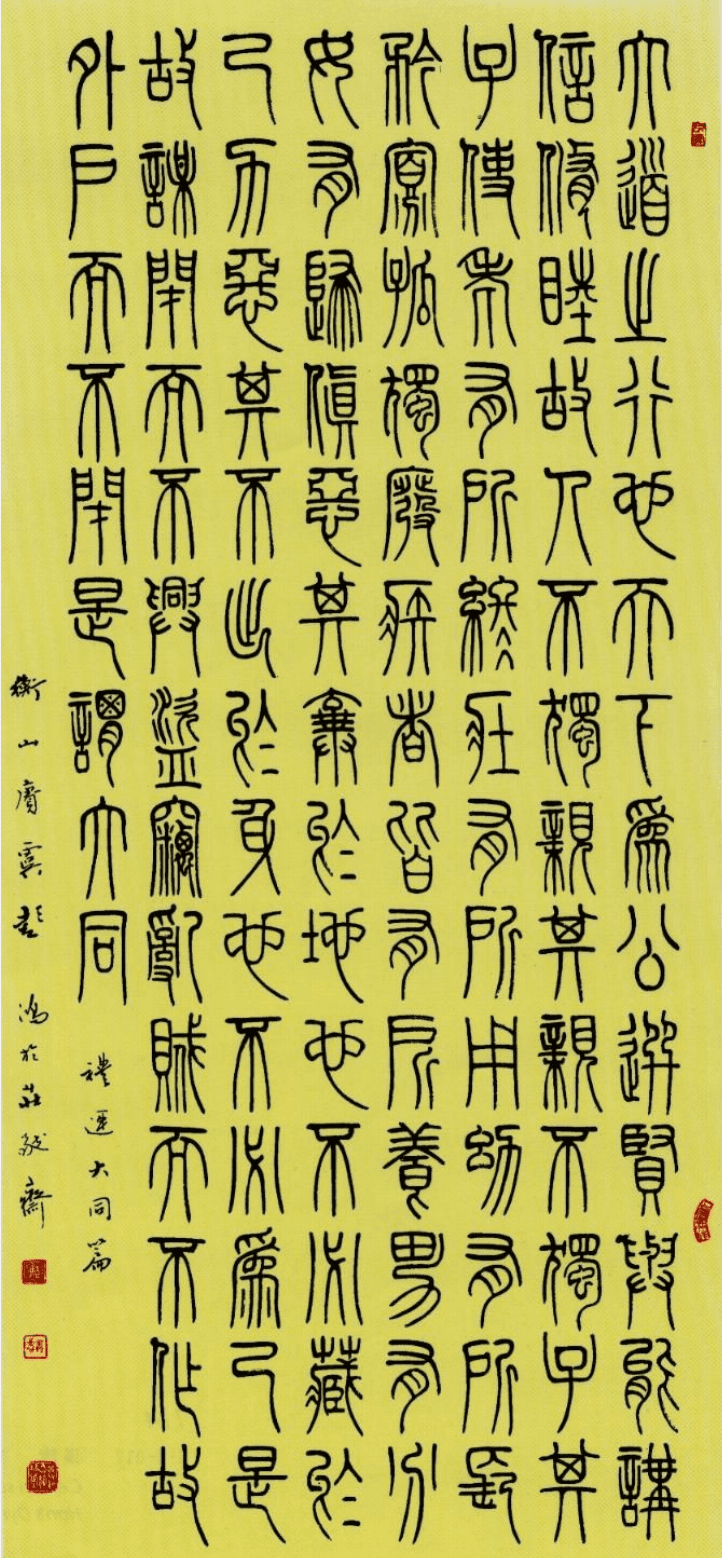 大道之行也天下為公選賢與能講
信修睦故人不獨親其親不獨子其
子使老有所終壯有所用幼有所長
矜寡孤獨廢疾者皆有所養男有分
女有歸貨惡其棄於地也不必藏於
己力惡其不出於身也不必為己是
故謀閉而不興盜竊亂賊而不作故
外戶而不閉是謂大同
禮運大同篇
衡山賡虞彭鴻於莊敬齋